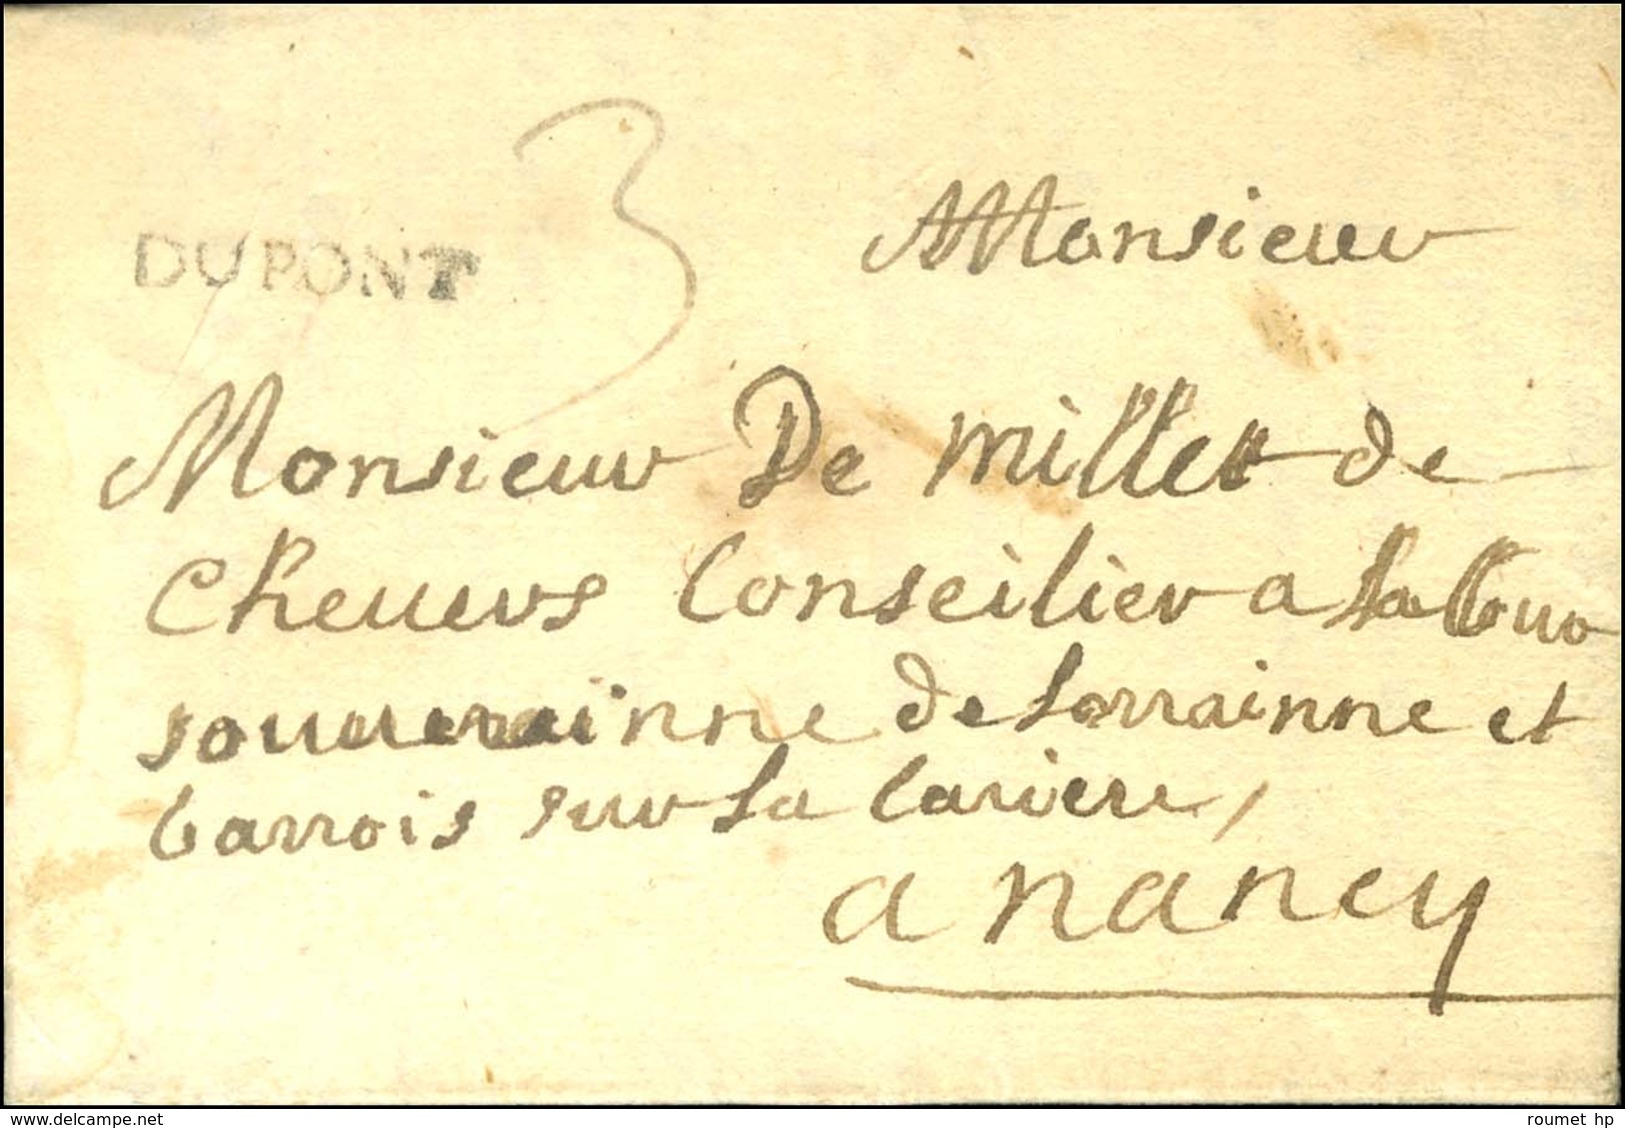 3
Monsieur
DUPONT
Monsieur De millet de
cheuers Conseilier a la Cour
souuerainne de lorrainne et
barrois sur la cariere,
a nancy
delcampe.net
roumet hp